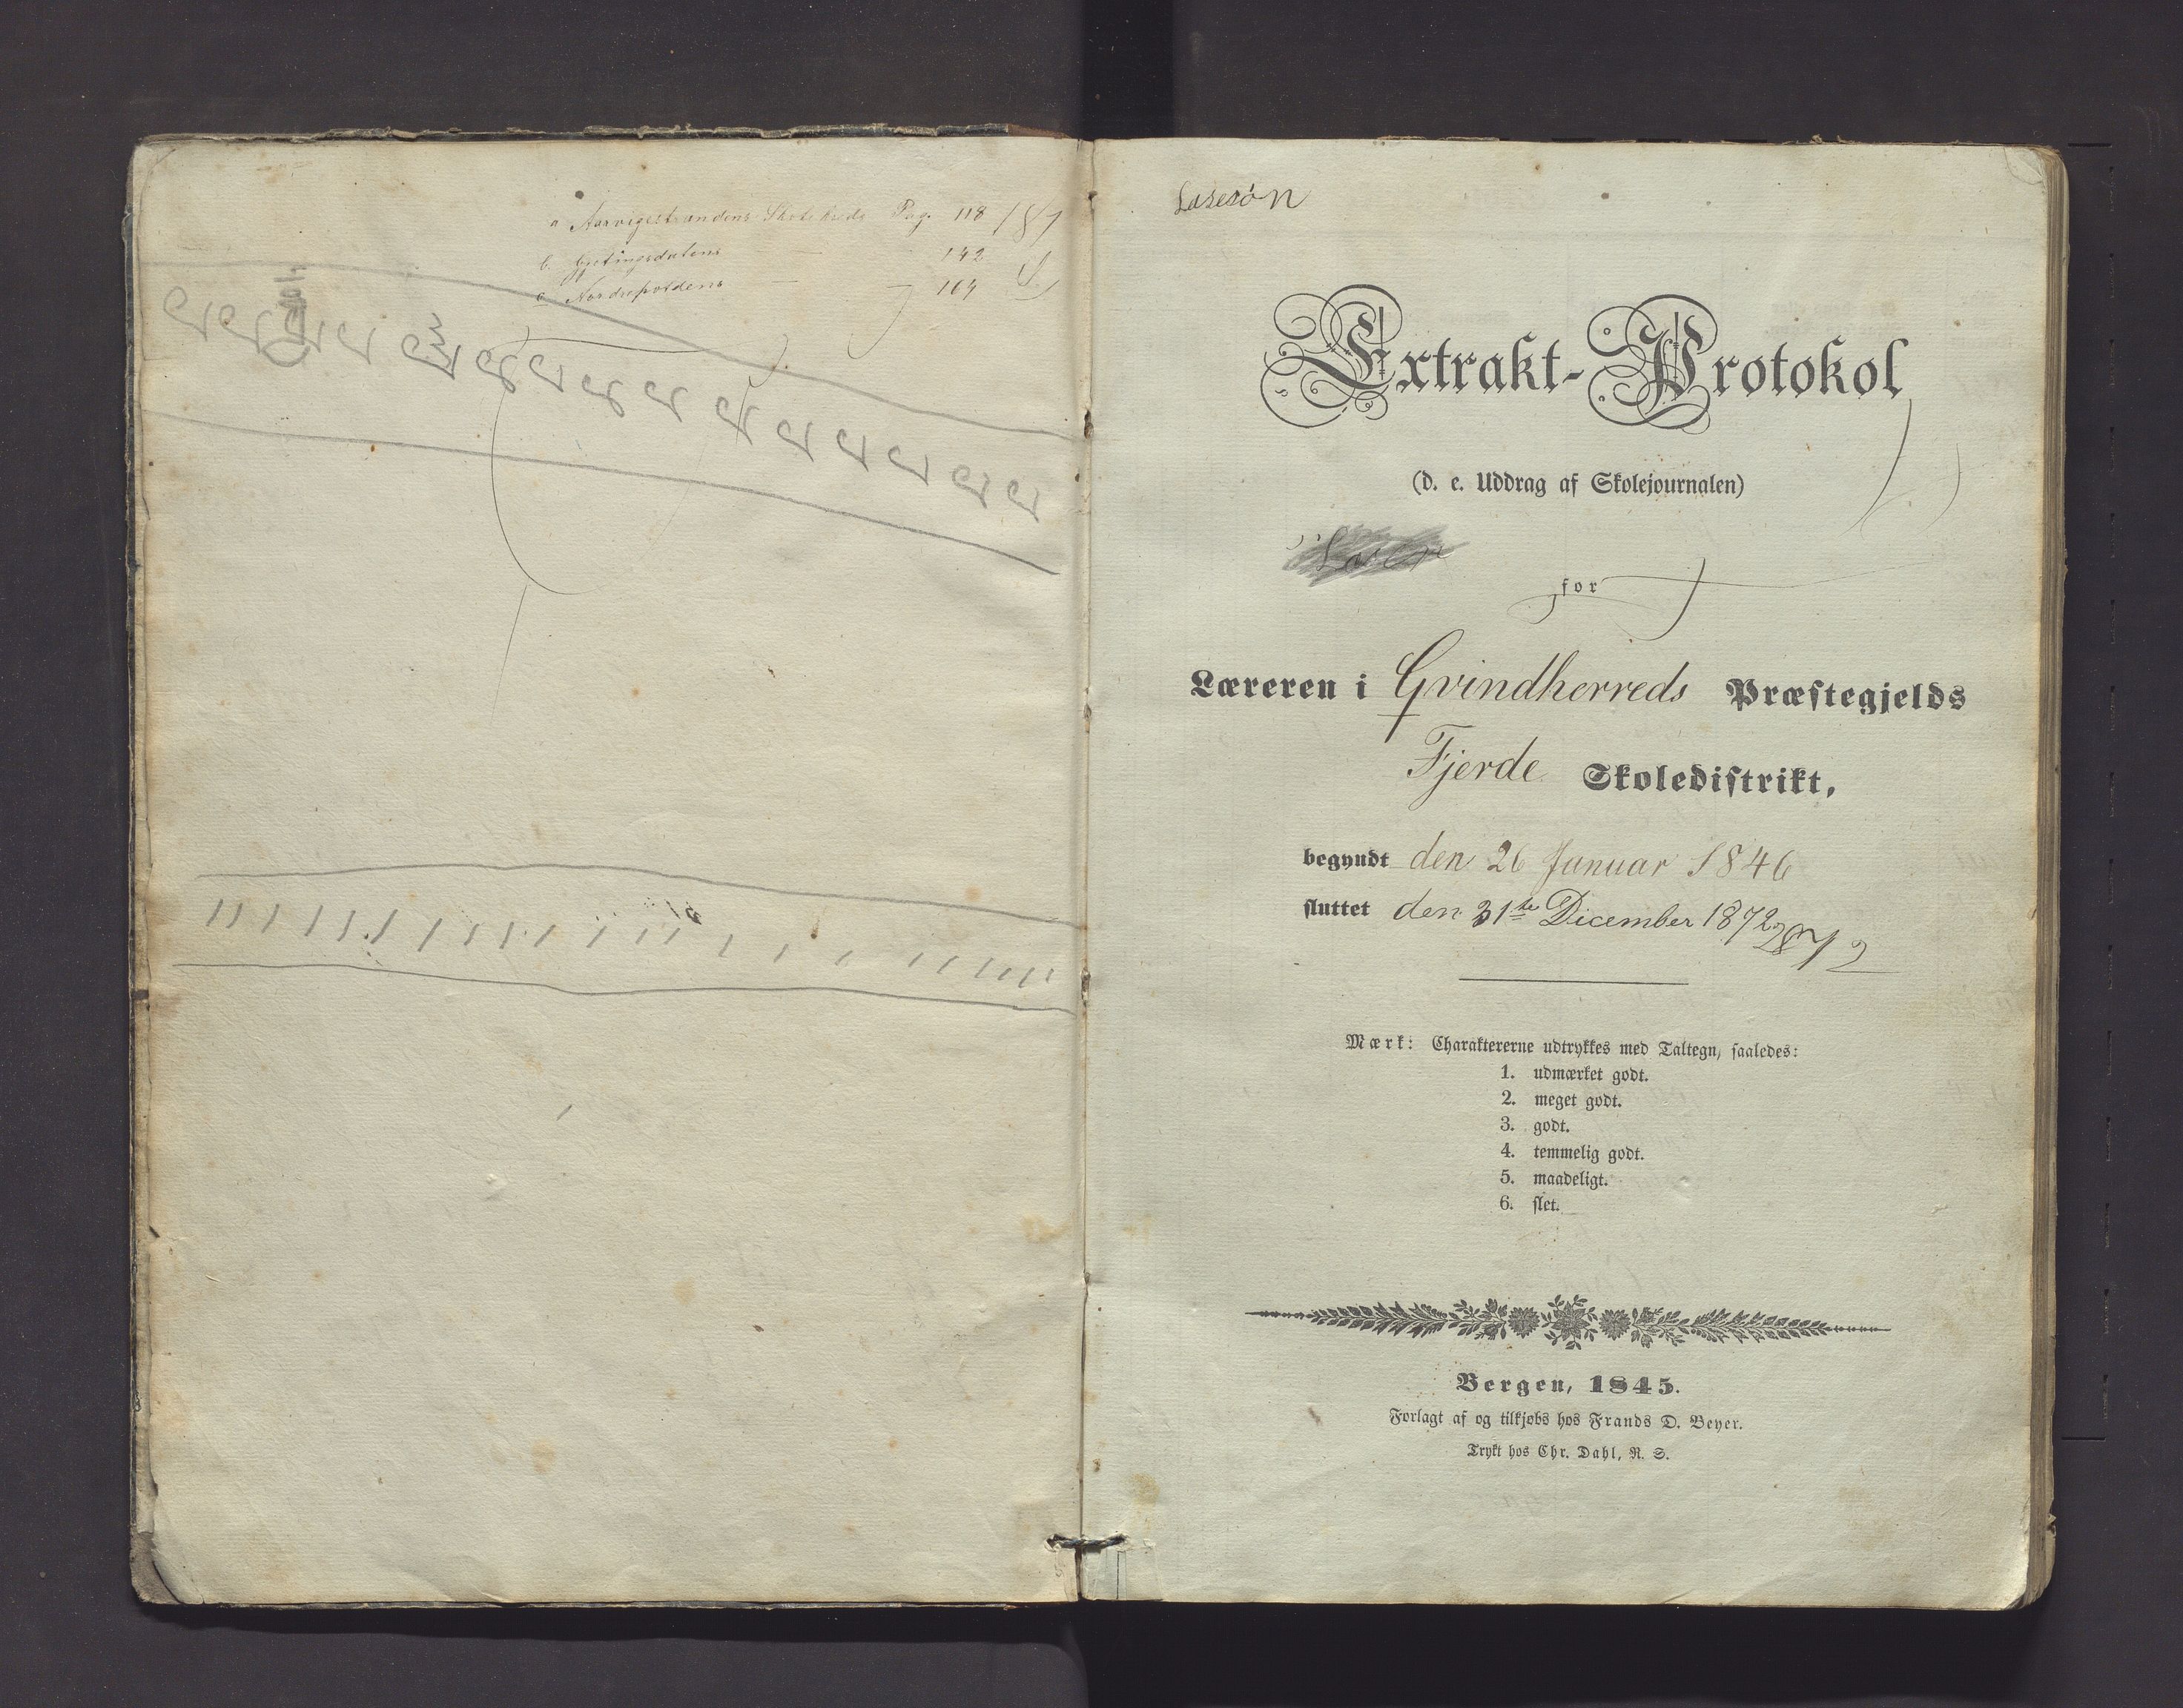 a Aarvigestrandens Skolekreds Pag. 118
b. Gjetingsdalens — 142
c Nordrepoldens — 164
Lasesön
Extrakt-Protokol
(d. e. Uddrag af Skolejournalen)
for
Læreren i Qvindherreds Præstegjelds
Fjerde Skoledistrikt,
begyndt den 26 Januar 1846
sluttet den 31te December 1872
Mærk: Charaktererne udtrykkes med Taltegn, saaledes:
1. udmærket godt.
2. meget godt.
3. godt.
4. temmelig godt.
5. maadeligt.
6. slet.
Bergen, 1845.
Forlagt af og tilkjøbs hos Frands D. Beyer.
Trykt hos Chr. Dahl, R. S.